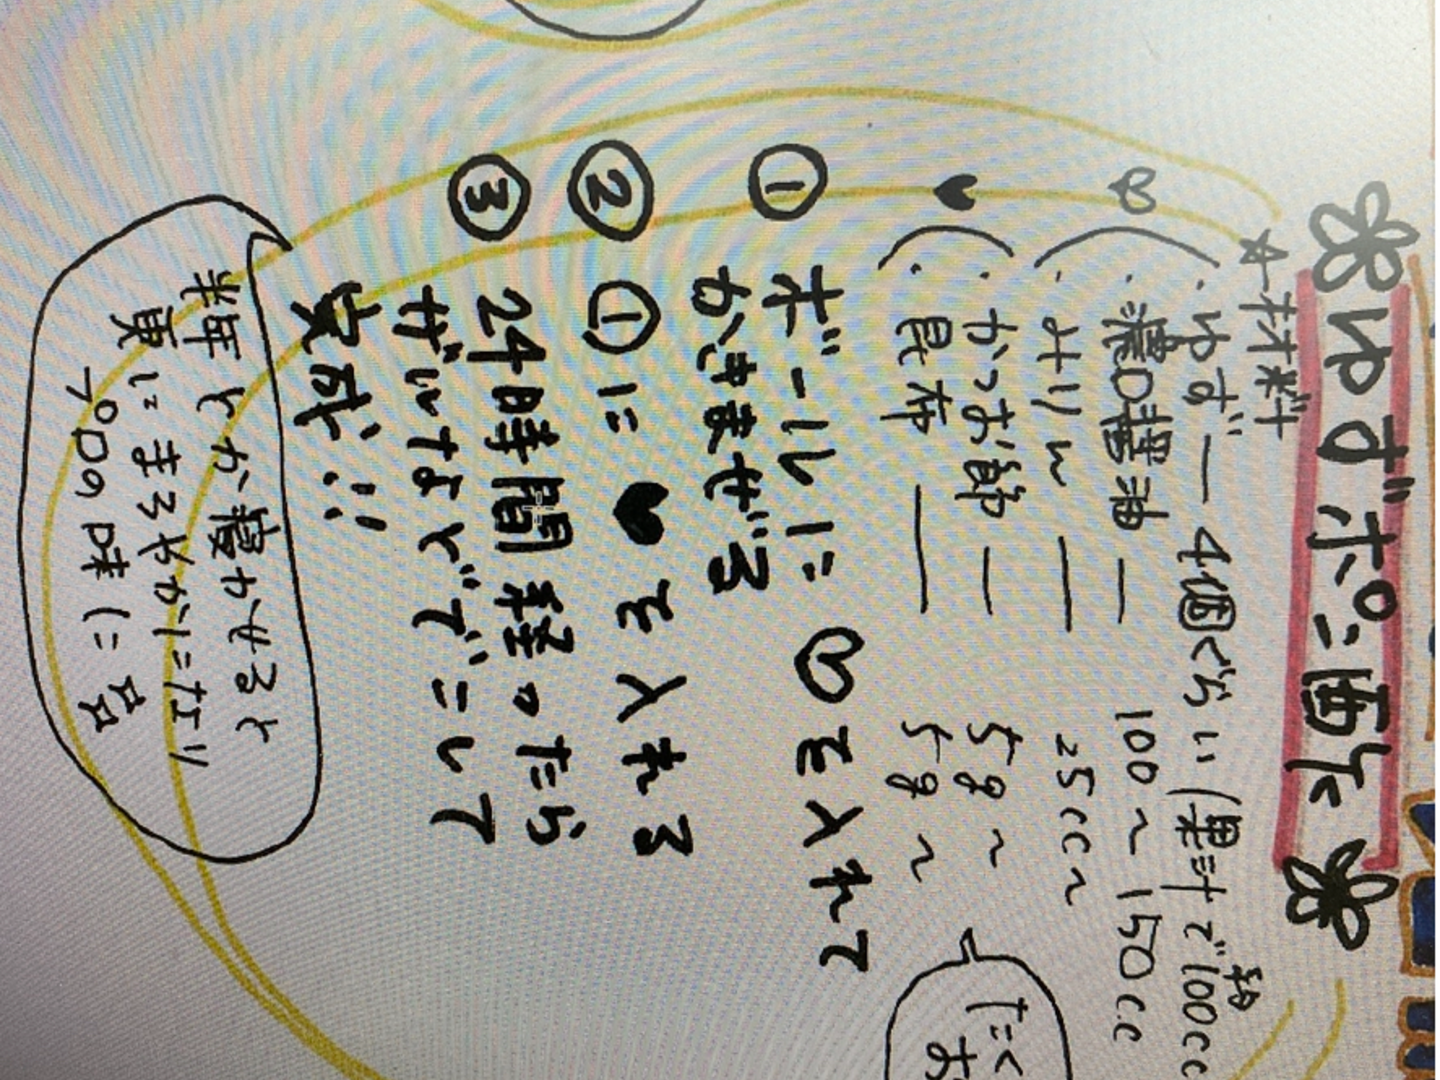 ゆずポン酢
☆材料
♡
・ゆず — 4個ぐらい(果汁で約100cc
・濃口醤油 — 100〜150cc
・みりん — 25cc〜
♥
・かつお節 — 5g〜
・昆布 — 5g〜
たく
お
① ボールに♡を入れて
かきまぜる
② ①に♥を入れる
③ 24時間経ったら
ガーゼなどでこして
完成!!
半年とか寝かせると
更にまろやかになり
プロの味に